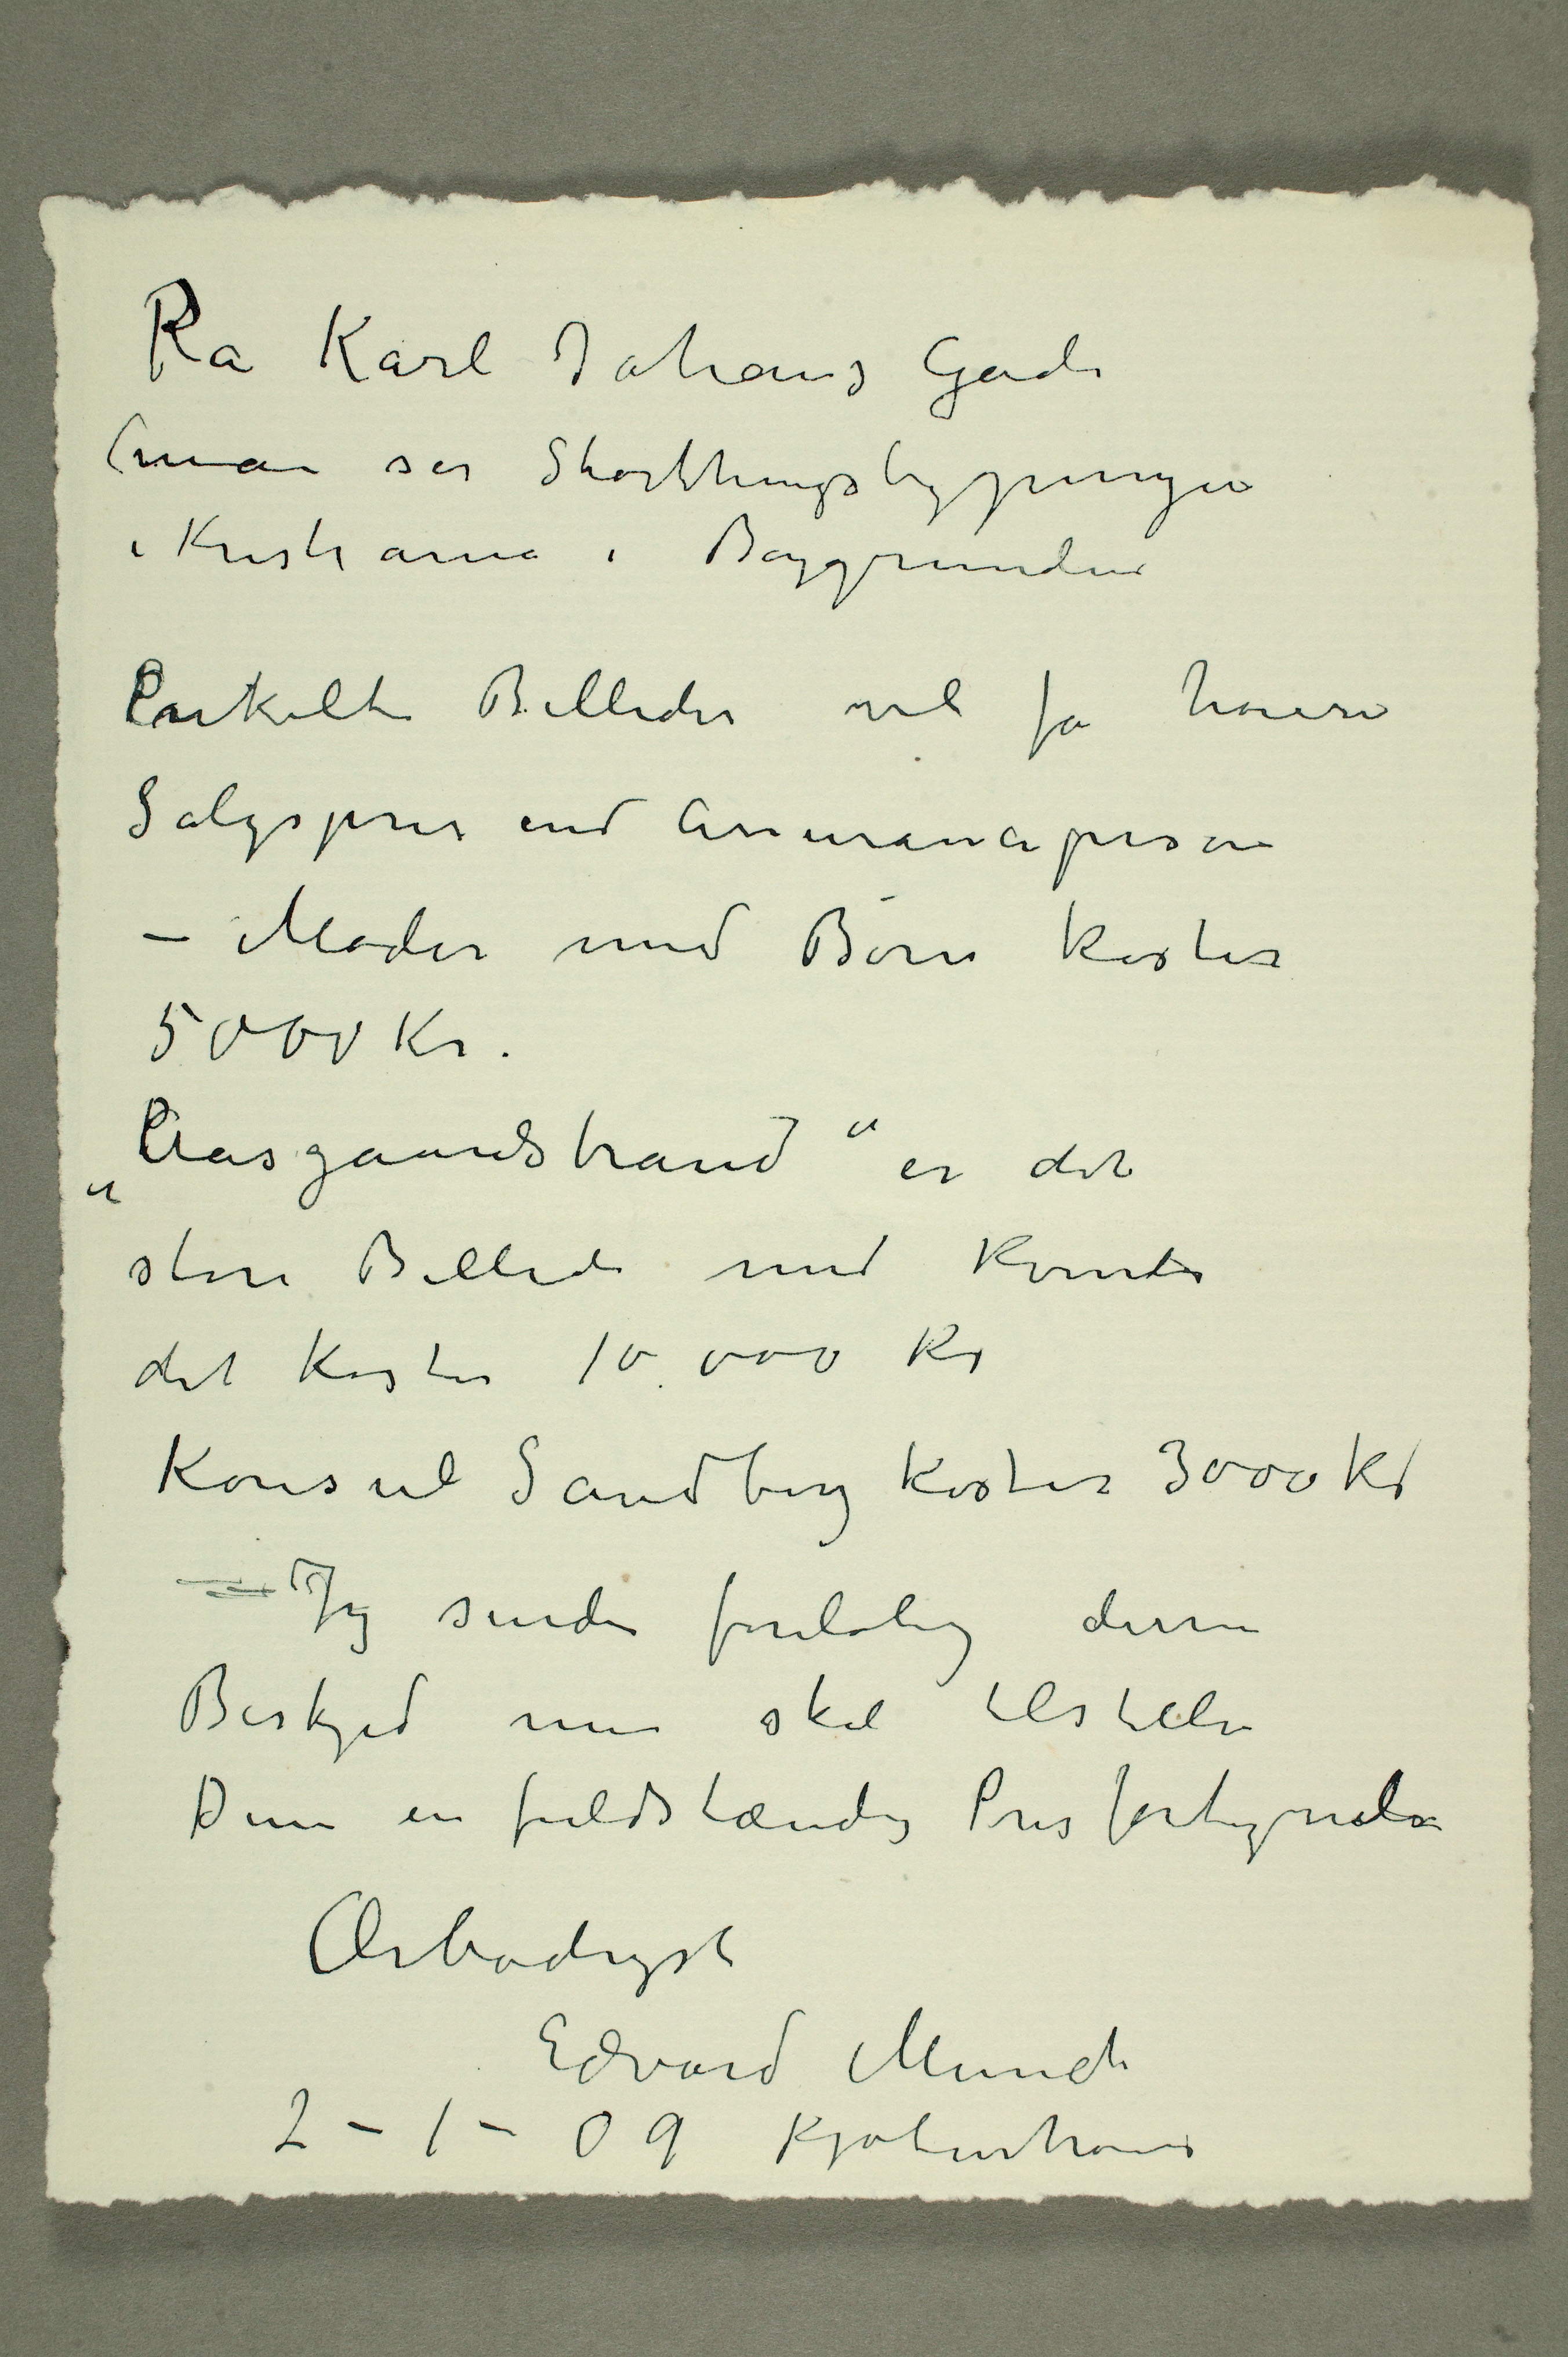 Pa Karl Johans Gade
(man ser Storthingsbygningen
i Kristiania i Baggrunden
Enkelte Billeder vil fa høiere
Salgspris end Assuranceprisen
– Moder med Børn koster
5000 Kr.
„Aasgaardstrand“ er det
store Billede med Kvinder
det koster 10.000 Kr
Konsul Sandberg koster 3000 Kr
– Jeg sender foreløbig denne
Beskjed men skal tilstille
Dem en fuldstændig Prisfortegnelse
Ærbødigst
Edvard Munch
2 – 1 – 09 Kjøbenhavn